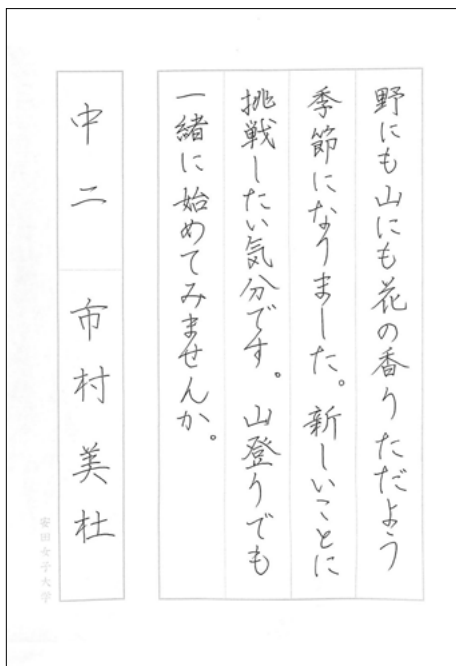 野にも山にも花の香りただよう
季節になりました。新しいことに
挑戦したい気分です。山登りでも
一緒に始めてみませんか。
中二 市村美杜
安田女子大学